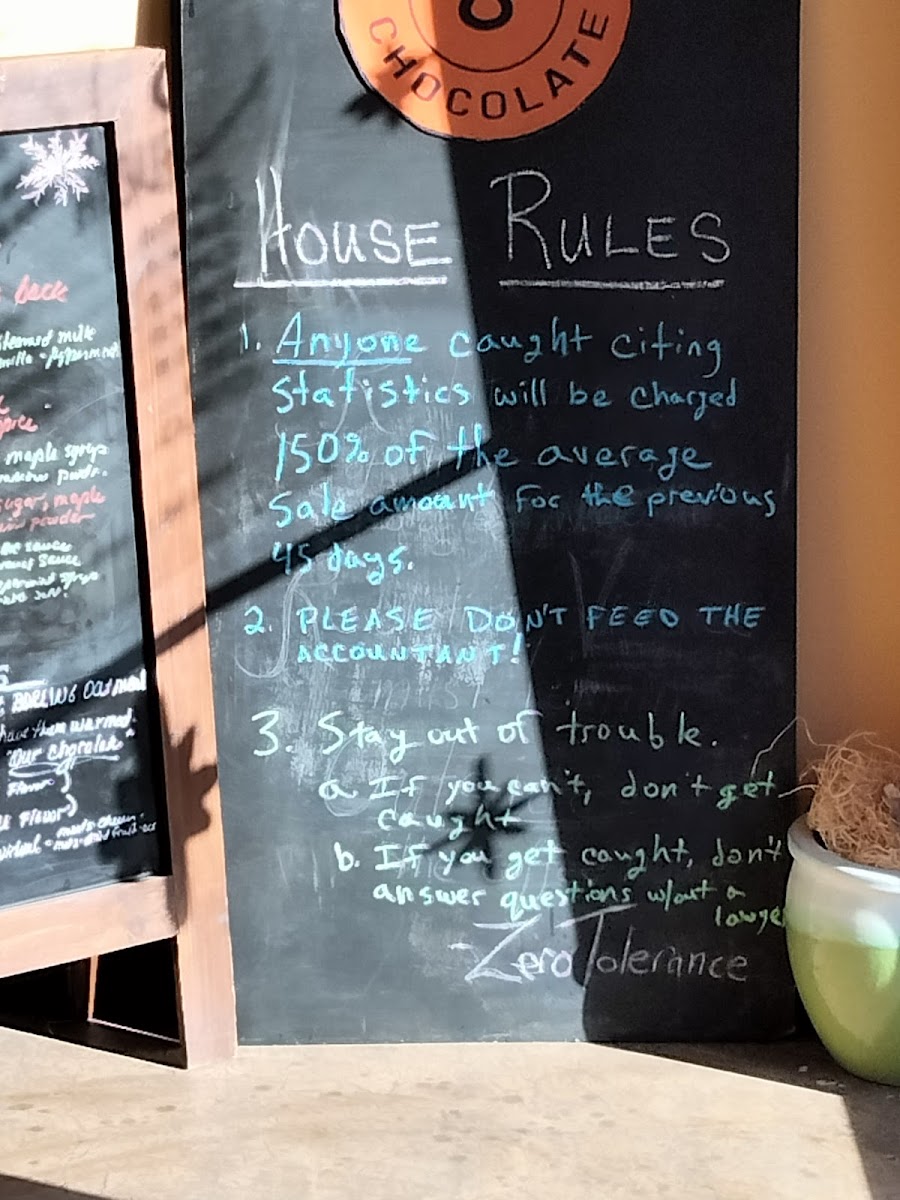 CHOCOLATE
HOUSE RULES
1. Anyone caught citing
statistics will be charged
150% of the average
sale amount for the previous
45 days.
2. PLEASE DON'T FEED THE
ACCOUNTANT!
3. Stay out of trouble.
a. If you can't, don't get
caught
b. If you get caught, don't
answer questions w/out a
lawye
Zero Tolerance
back
steamed milk
maple syrup
sugar, maple
powder
sauce
sauce
oatmeal
have them warmed.
"Our chocolate"
Flavor
Flavor